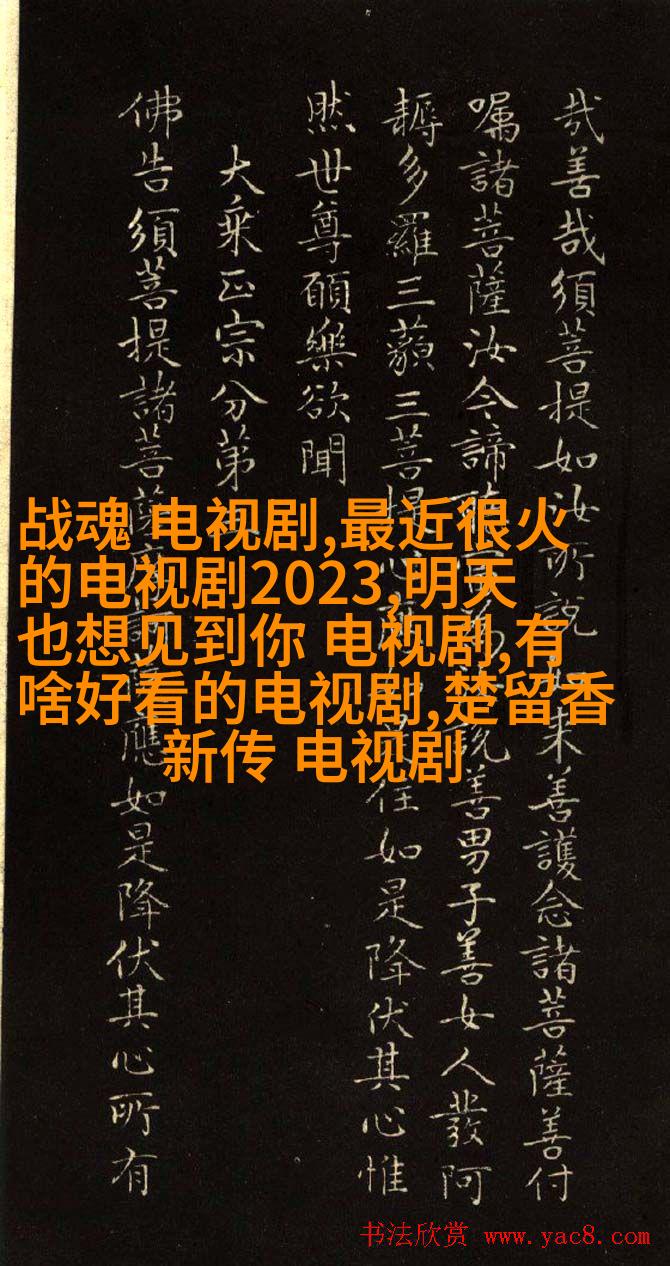 哉善哉須菩提如汝所說如来善護念諸菩薩善付
囑諸菩薩汝今諦聽當為汝說善男子善女人發阿
耨多羅三藐三菩提心住如是降伏其心惟
然世尊願樂欲聞
大乘正宗分第
佛告須菩提諸菩薩摩應如是降伏其心所有
战魂 电视剧,最近很火
的电视剧2023,明天
也想见到你 电视剧,有
啥好看的电视剧,楚留香
新传 电视剧
书法欣赏 www.yac8.com